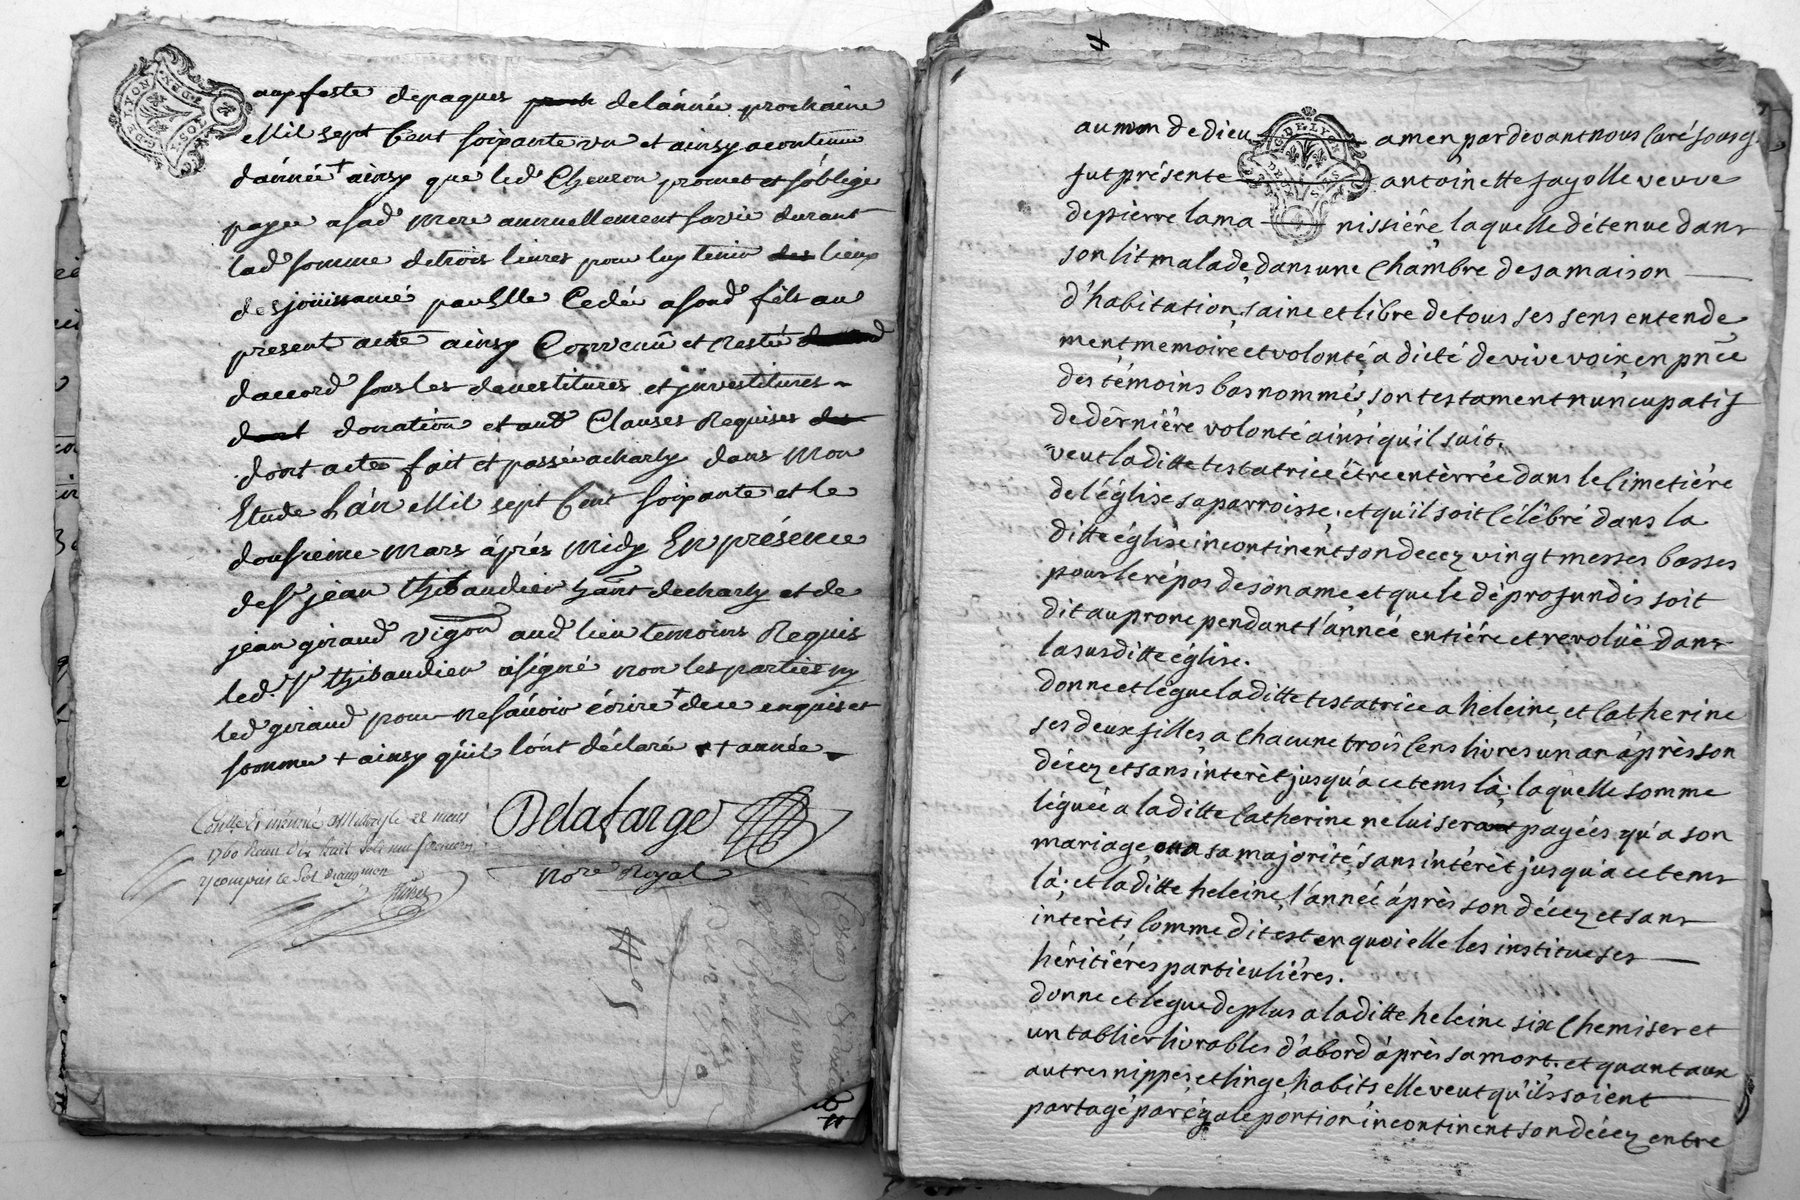 aux feste depaques proch delánnée prochaine
Mil sept Cent soixante un et ainsy acontinuer
dánnée + ainsy que led. Cheuron promet et s'oblige
payer asad. Mere annuellement savie durant
lad. somme detrois liures pour luy tenir des lieux
desjoüissance par Elle Cedée asond. fils au
present acte ainsy Convenü et Resté
daccord sous les deuestitures et jnvestitures
dont donation et autr. Clauses Requises des
dont acte fait et passé acharly dans Mon
Etude L'an Mil sept Cent soixante et le
dousieime Mars áprés Midy En présence
de Sr. jean thibaudier hant. decharly et de
jean giraud Vigon aud. lieu temoins Requis
led. Sr. thibaudier asigné non les parties ny
led giraud pour ne sçavoir écrire + dece enquis et
sommé + ainsy quil lónt déclaré + année
Collé 22 mars
1760 Reçu dix huit sols
ycompris le Sol
Delafarge
Nore Royal
4
aumon de dieu amen pardevant nous Curé sousg.
fut présente antoinette fayolle veuve
depierre lama nissiére laquelle détenue dans
son lit malade dans une Chambre de sa maison
d'habitation, saine et libre de tous ses sens entende
ment memoire et volonté a dicté de vive voix en pnce
des témoins bas nommés son testament nuncupatif
de dérniére volonté ainsi qu'il suit.
veut la ditte testatrice être entérrée dans le Cimetiére
de l'église sa parroisse. et qu'il soit Célébré dans la
ditte église incontinent son decez vingt messes basses
pour le répos de son ame et que le déprofundis soit
dit au prone pendant l'anneé entiére et revoluë dans
la susditte église.
donne et légue la ditte testatrice a heleine et Catherine
ses deux filles, a chacune trois Cens livres un an áprès son
décez et sans interèt jusqu'a ce tems là. laquelle somme
léguée a la ditte Catherine ne lui sera payées qu'a son
mariage ou a sa majorité, sans intérèt jusqu'a ce tems
là; et la ditte heleine, l'année áprès son décez et sans
interèts Comme dit est en quoi elle les institue ses
héritiéres particuliéres.
donne et légue de plus a la ditte heleine six Chemises et
un tablier livrables d'abord áprès sa mort. et quant aux
autres nippes et linge, habits elle veut qu'ils soient
partagé par égale portion incontinent son décez entre